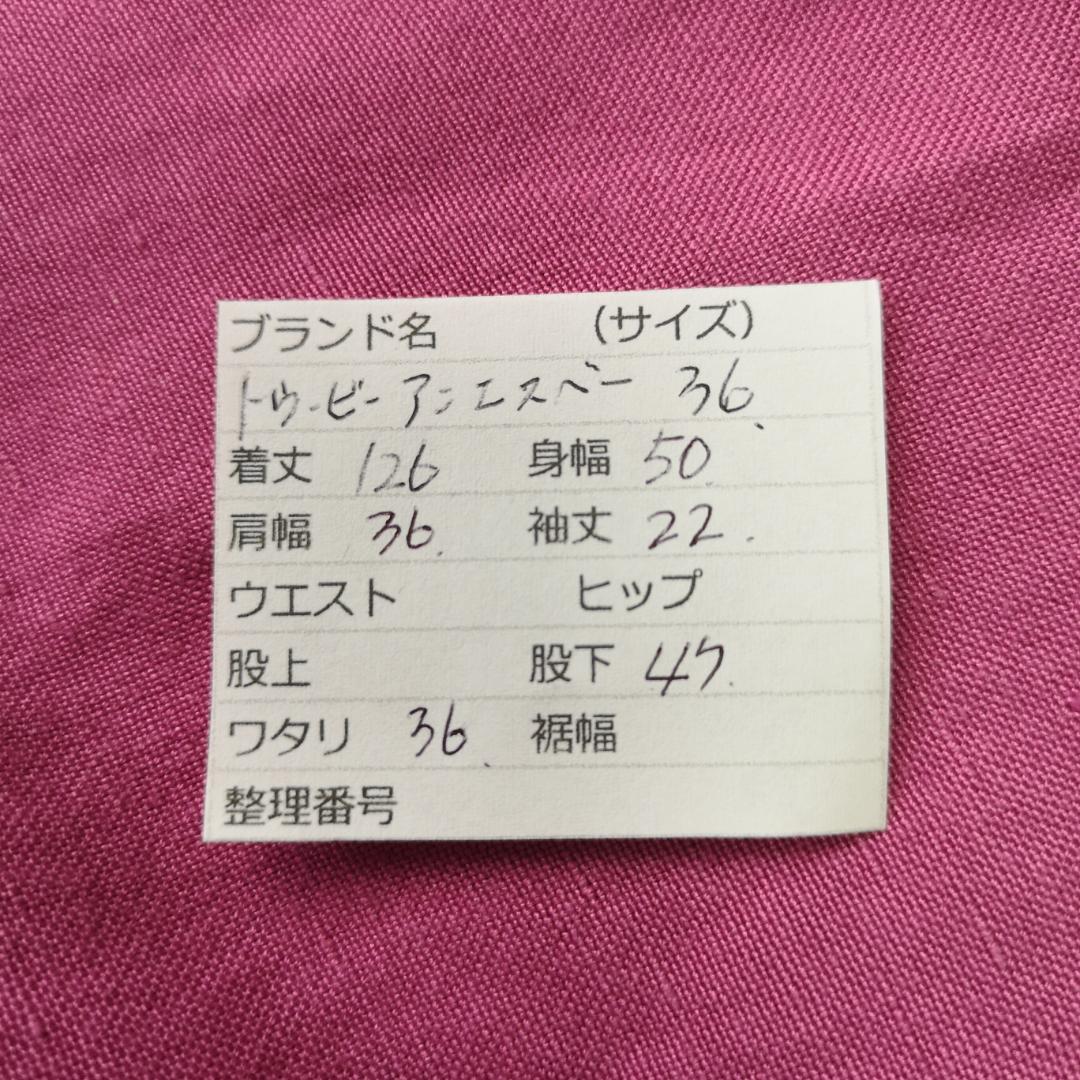 ブランド名 (サイズ)
トゥービーアンエスベー 36.
着丈 126 身幅 50.
肩幅 36. 袖丈 22.
ウエスト ヒップ
股上 股下 47.
ワタリ 36. 裾幅
整理番号